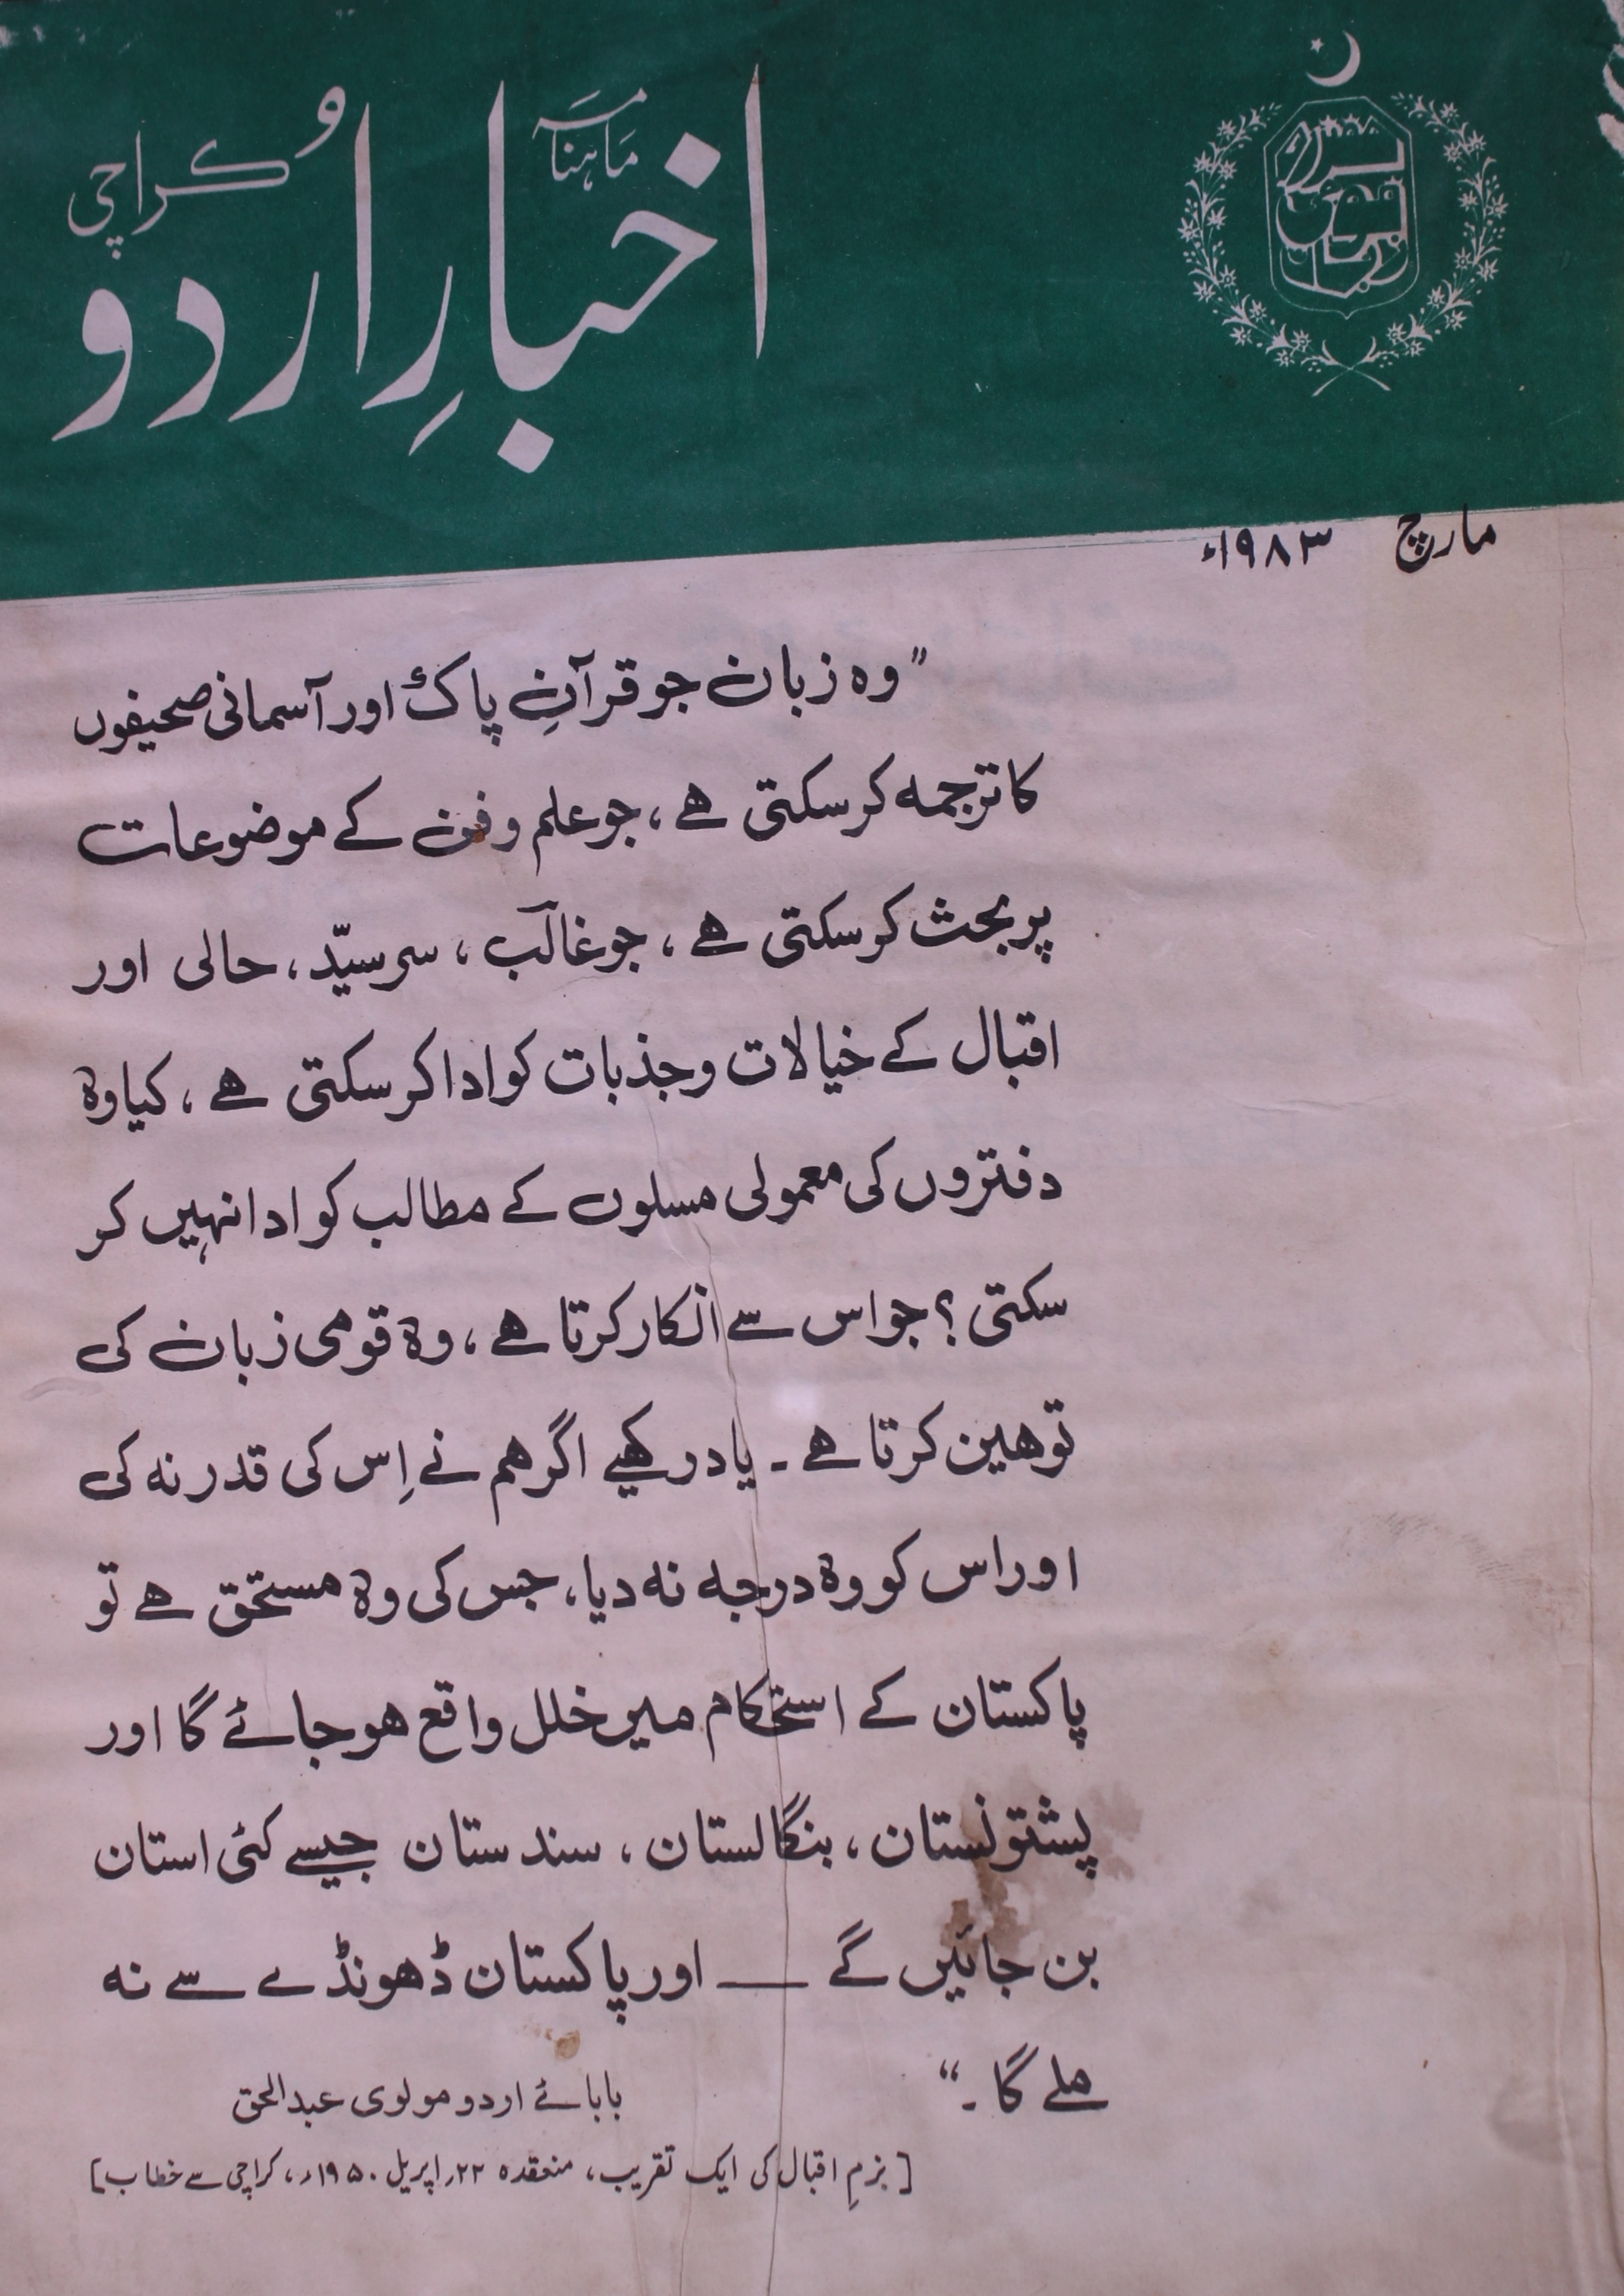 ماہنامہ
اخبارِ اردو
کراچی
مارچ ۱۹۸۳ء
"وہ زبان جو قرآنِ پاک اور آسمانی صحیفوں
کا ترجمہ کر سکتی ہے، جو علم و فن کے موضوعات
پر بحث کر سکتی ہے، جو غالب، سرسیّد، حالی اور
اقبال کے خیالات و جذبات کو ادا کر سکتی ہے، کیا وہ
دفتروں کی معمولی مسلوں کے مطالب کو ادا نہیں کر
سکتی؟ جو اس سے انکار کرتا ہے، وہ قومی زبان کی
توہین کرتا ہے۔ یاد رکھیے اگر ہم نے اِس کی قدر نہ کی
اور اس کو وہ درجہ نہ دیا، جس کی وہ مستحق ہے تو
پاکستان کے استحکام میں خلل واقع ہو جائے گا اور
پشتونستان، بنگالستان، سندستان جیسے کئی استان
بن جائیں گے — اور پاکستان ڈھونڈے سے نہ
ملے گا۔"
بابائے اردو مولوی عبدالحق
[بزمِ اقبال کی ایک تقریب، منعقدہ ۲۲ر اپریل ۱۹۵۰ء، کراچی سے خطاب]